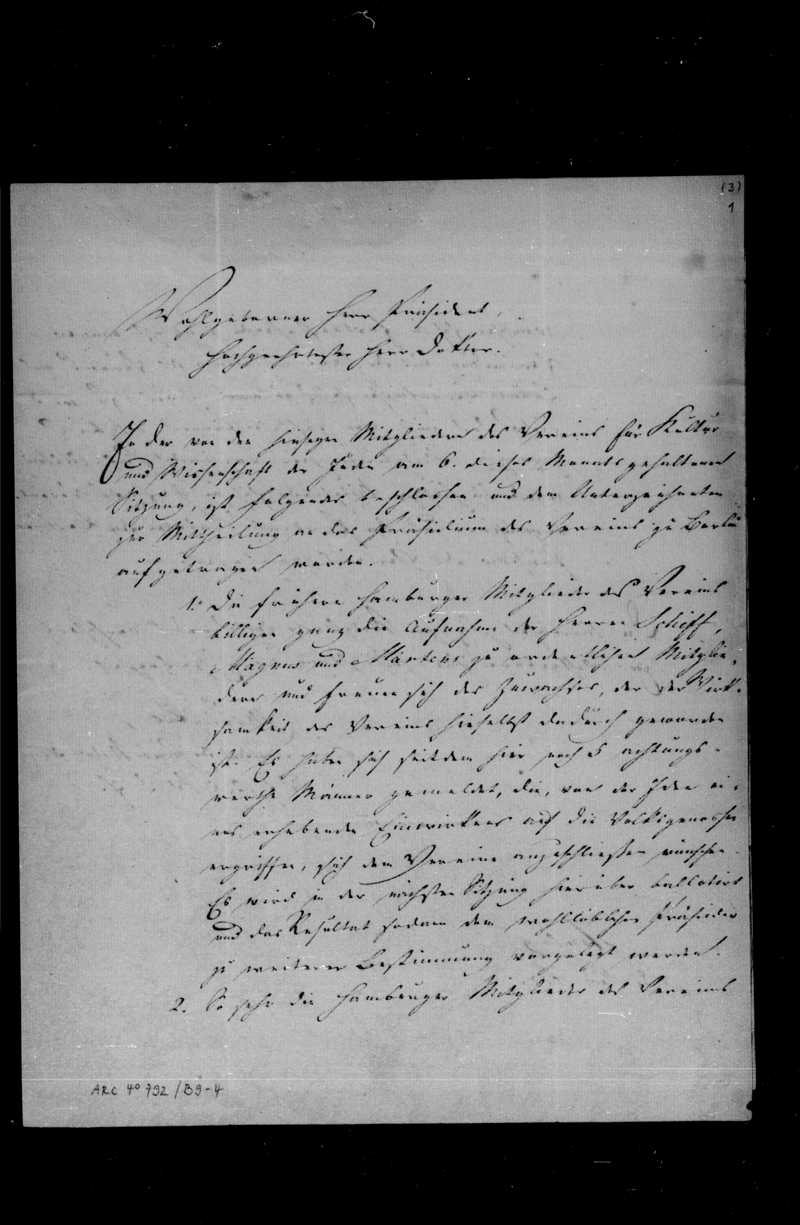 (3)
1
Wohlgeborner Herr Präsident,
Hochgeehrtester Herr Doktor.
In der von den hiesigen Mitgliedern des Vereins für Kultur
und Wissenschaft der Juden am 6. dieses Monats gehaltenen
Sitzung, ist folgendes beschlossen und dem Unterzeichneten
zur Mittheilung an das Präsidium des Vereins zu Berlin
aufgetragen worden.
1. Die frühern Hamburger Mitglieder des Vereins
billigen ganz die Aufnahme der Herren Schiff,
Magnus und Martens zu ordentlichen Mitglie-
dern und freuen sich des Zuwachses, der der Wirk-
samkeit des Vereins hieselbst dadurch geworden
ist. Es haben sich seitdem hier noch 5 achtungs-
werthe Männer gemeldet, die, von der Idee ei-
nes erhebenden Einwirkens auf die Volksgenossen
ergriffen, sich dem Vereine anzuschließen wünschen.
Es wird in der nächsten Sitzung hierüber ballotirt
und das Resultat sodann dem wohllöblichen Präsidio
zu weiterer Bestimmung vorgelegt werden.
2. So sehr die Hamburger Mitglieder des Vereins
ARC 4° 792 / B9-4